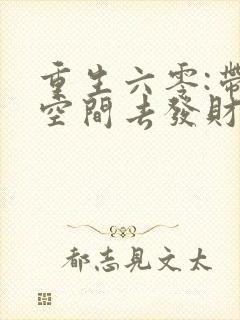 重生六零:帶
空間去發財
都志見文太